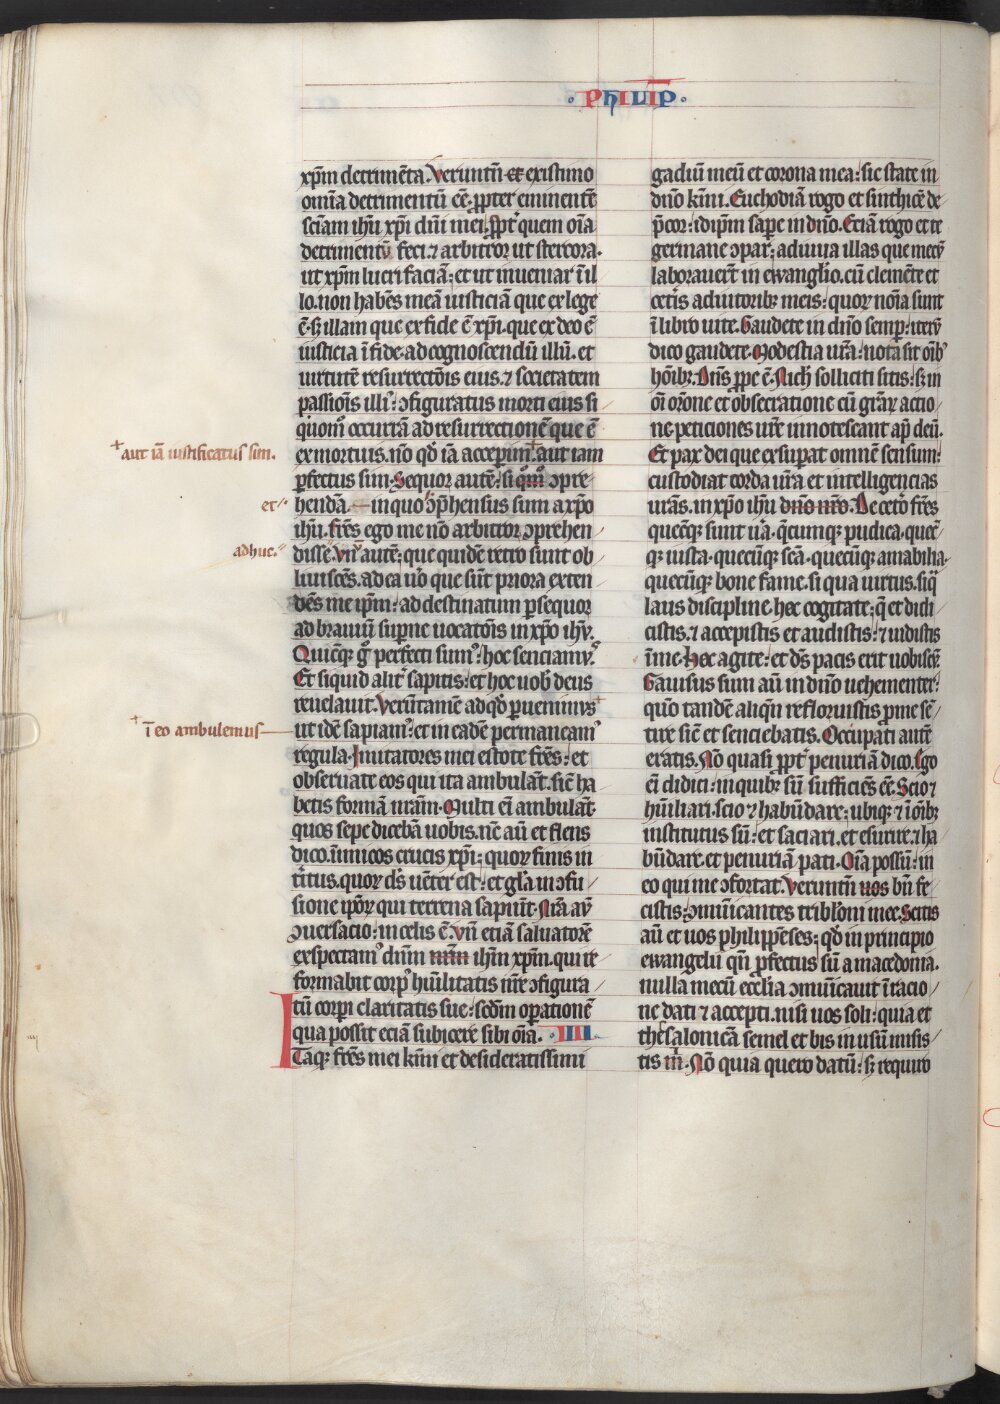 · PHILIP ·
xp̄m detrimēta. Verunt̄n et existimo
omīa detrimentū eē. ꝓpter eminentē
sciam ih̄u xp̄i dn̄i mei. ꝓpt' quem oīa
detrimentū feci. ⁊ arbitror ut stercora.
ut xp̄m lucrifaciā: et ut inueniar ī il
lo. non habēs meā iusticiā que ex lege
ē. sꝫ illam que ex fide ē xp̄i. que ex deo ē
iusticia ī fide. ad cognoscendū illū. et
uirtutē resurrectōis eius. ⁊ societatem
passiōis illi': ɔfiguratus morti eius si
quom̊ occurrā ad resurrectionē que ē
ex mortuis. nō qd̄ iā acceperim + aut iam
+ aut iā iustificatus sim.
ꝑfectus sim. Sequor autē: si qm̄ ɔpre
hendā. in quo ɔp̄hensus sum a xp̄o
et
ih̄u. fr̄es ego me nō arbitror ɔprehen
disse. Vn̄ autē: que quidē retro sunt ob
adhuc.
liuiscēs. ad ea ůo que sūt priora exten
dēs me ip̄m: ad destinatum ꝑsequor
ad brauiū suꝑne uocatōis in xp̄o ih̄u.
Quicūqꝫ g̊ ꝑfecti sum': hoc senciam'.
Et siquid alit' sapitis: et hoc uob̄ deus
reuelauit. Verūtamē ad qd̊ ꝑuenimus +
ut idē sapiam': et in eadē permaneam'
+ ī eo ambulemus
regula. Imitatores mei estote fr̄es: et
obseruate eos qui ita ambulāt. sic̄ ha
betis formā n̄ram. Multi eī ambulāt
quos sepe dicebā uobis. nc̄ aū et flens
dico. inimicos crucis xp̄i: quoꝝ finis in
t̄itus. quoꝝ d̄s uēter est: et gl̄a in ɔfu
sione ip̄oꝝ qui terrena sapiūt. Nr̄a aū
ɔuersacio: in celis ē. Vn̄ etiā saluatorē
expectam' dn̄m nr̄m ih̄m xp̄m. qui re
formabit corp' hūilitatis nr̄e ɔfigura
tū corpi claritatis sue: scd̄m oꝑationē
qua possit eciā subicere sibi oīa. IIII.
Itaqꝫ fr̄es mei kr̄mi et desideratissimi
gadiū meū et corona mea: sic state in
dn̄o kr̄mi. Euchodiā rogo et sinthicē de
p̄cor: idip̄m sapere in dn̄o. Eciā rogo et te
germane ɔpar: adiuua illas que mecū
laborauerūt in ewangl̄io. cū clemēte et
cetīs adiutoribꝫ meis: quoꝝ noīa sunt
ī libro uite. Gaudete in dn̄o semꝑ: iterū
dico gaudete. Modestia ur̄a: nota sit oībꝫ
hōibꝫ. Dn̄s ꝓpe ē. Nich̄ solliciti sitis: sꝫ in
oī or̄one et obsecratione cū gr̄aꝝ actio
ne peticiones ur̄e innotescant ap̄ deū.
Et pax dei que exsuꝑat omnē sensum:
custodiat corda ur̄a et intelligencias
ur̄as. in xp̄o ih̄u dn̄o nr̄o. De cet̊o fr̄es
quecūqꝫ sunt ůa. qēcumqꝫ pudica. quec̄
qꝫ iusta. quecūqꝫ scā. quecūqꝫ amabilia.
quecūqꝫ bone fame. si qua uirtus. siq̄
laus discipline. hec cogitate: q̄ et didi
cistis. ⁊ accepistis et audistis: ⁊ uidistis
ī me. Hec agite: et d̄s pacis erit uobiscū.
Gauisus sum aū in dn̄o uehementer:
quō tandē aliqn̄ refloruistis ꝓ me sē
tire sic̄ et senciebatis. Occupati autē
eratis. Nō quasi ꝓpt' penuriā dico. Ego
eī didici: in quibꝫ sū sufficiēs eē. Scio ⁊
hūiliari. scio ⁊ habūdare: ubiqꝫ ⁊ ī oībꝫ
institutus sū: et saciari. et esurire. ⁊ ha
būdare. et penuriā pati. Oīa possū: in
eo qui me ɔfortat. Verunt̄n uos bn̄ fe
cistis: ɔmūicantes tribl̄oni mee. Scitis
aū et uos philippēses: qd̄ in principio
ewangelii qn̄ ꝓfectus sū a macedonia.
nulla mecū eccl̄ia ɔmūicauit ī racio
ne dati ⁊ accepti. nisi uos soli: quia et
thesalonicā semel et bis in usū misis
tis m̊. Nō quia quero datū: sꝫ requiro